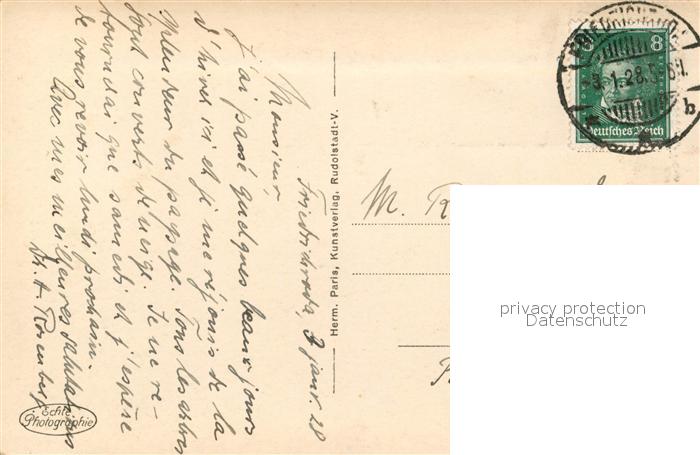 Friedrichroda, 3 janv. 28
Monsieur,
J'ai passé quelques beaux jours
d'hiver ici et je me réjouis de la
splendeur du paysage. Tous les arbres
sont couverts de neige. Je ne re-
tourndai que samedi et j'espère
de vous revoir lundi prochain.
Avec mes meilleures salutations
Dr. A. Rosenberg
Echte
Photographie
Herm. Paris, Kunstverlag, Rudolstadt-V.
M. R
8
Deutsches Reich
3.1.28.5
b
privacy protection
Datenschutz